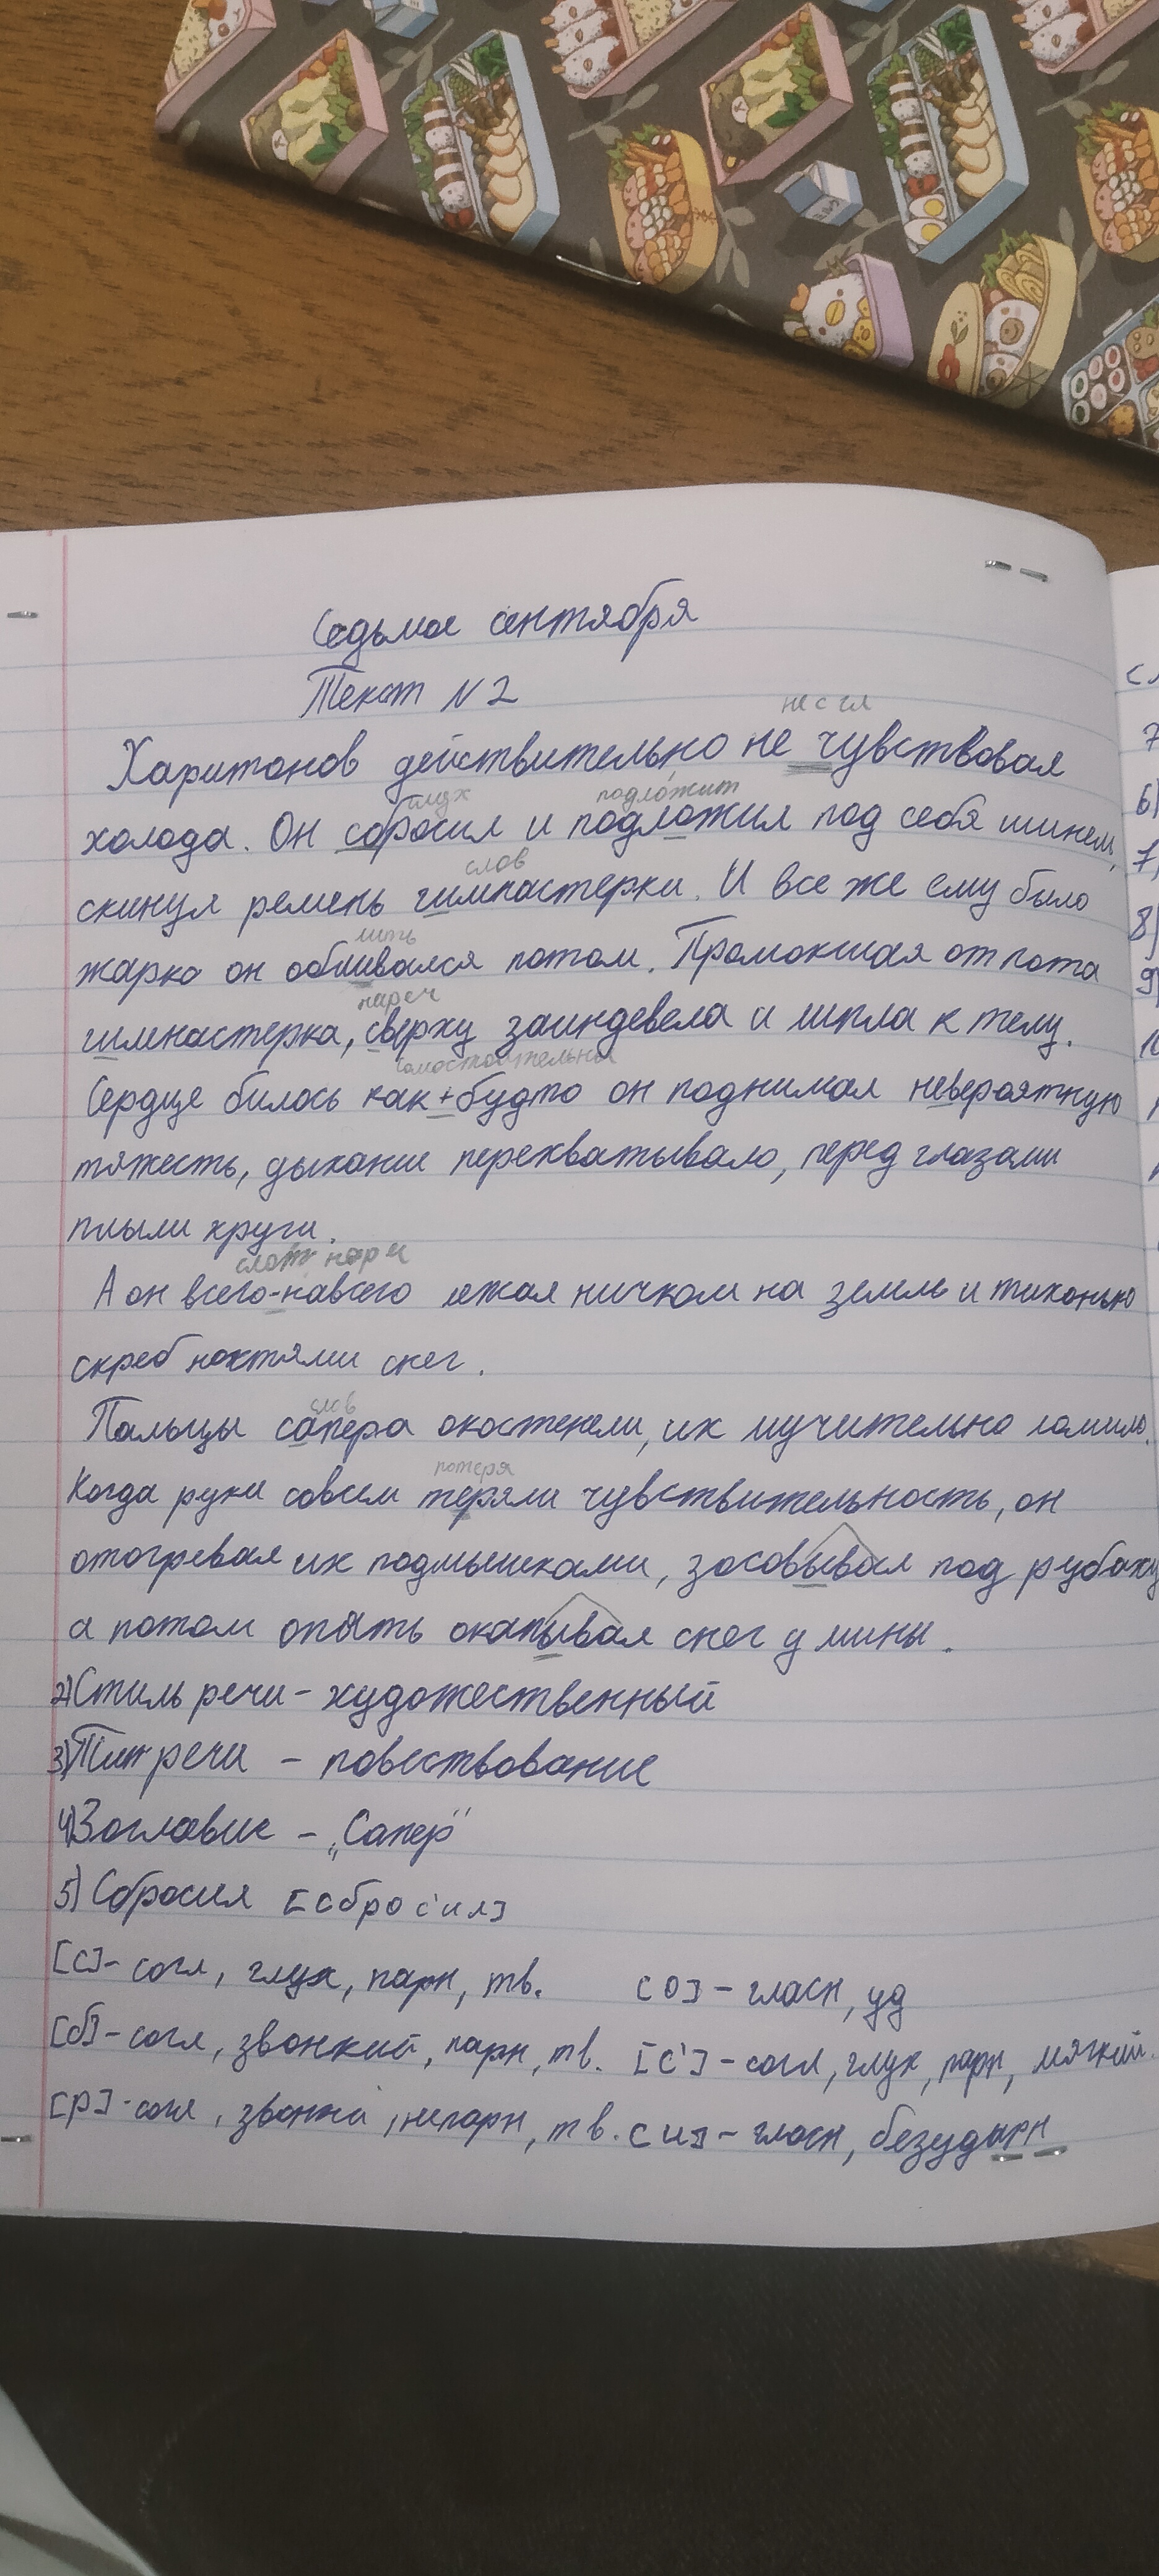 Седьмое сентября
Текст N 2
не с гл
Харитонов действительно не чувствовал
глух подложит
холода. Он сбросил и подложил под себя шинель,
слов
скинул ремень гимнастерки. И все же ему было
лить
жарко он обливался потом. Промокшая от пота
нареч
гимнастерка, сверху заиндевела и липла к телу.
самостоятельны
Сердце билось как+будто он поднимал невероятную
тяжесть, дыхание перехватывало, перед глазами
плыли круги.
слож нареч
А он всего-навсего лежал ничком на земле и тихонько
скреб ногтями снег.
слов
Пальцы сапера окостенели, их мучительно ломило.
потеря
Когда руки совсем теряли чувствительность, он
отогревал их подмышками, засовывал под рубаху
а потом опять окапывал снег у мины.
2) Стиль речи - художественный
3) Тип речи - повествование
4) Заглавие - „Сапер"
5) Сбросил [сброс'ил]
[с]- согл, глух, парн, тв. [о] - гласн, уд
[б]- согл, звонкий, парн, тв. [с'] - согл, глух, парн, мягкий.
[р]- согл, звонкй, непарн, тв. [и] - гласн, безударн
6)
8)
9)